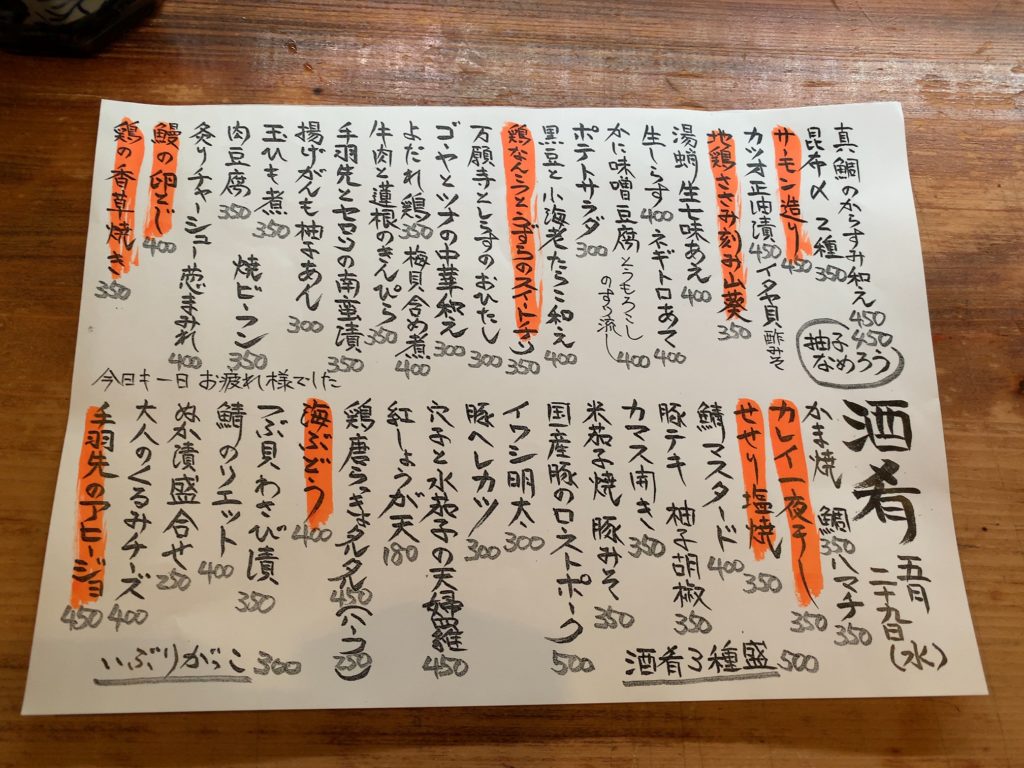 酒肴
五月
二十九日(水)
真鯛のからすみ和え 450
昆布〆 2種 350 450
柚子
なめろう
サーモン造り 450
カツオ正油漬 450 イタヤ貝酢みそ
地鶏ささみ刻み山葵 350
湯蛸生七味あえ 400
生しらす 400 ネギトロあて 400
かに味噌豆腐 とうもろこし
のすり流し 400
ポテトサラダ 300
黒豆と小海老たらこ和え 400
鶏なんこつとうずらのスイートチリ 350
万願寺としらすのおひたし 300
ゴーヤとツナの中華和え 300
よだれ鶏 350 梅貝含め煮 400
牛肉と蓮根のきんぴら 350
手羽先とセロリの南蛮漬 350
揚げがんも柚子あん 300
玉ひも煮 350
肉豆腐 350 焼ビーフン 350
炙りチャーシュー葱まみれ 400
鰻の卵とじ 400
鶏の香草焼き 350
今日も一日お疲れ様でした
かま焼 鯛 350 ハマチ 350
カレイ一夜干し 350
せせり塩焼 350
鯖マスタード 400
豚テキ 柚子胡椒 350
カマス開き 350
米茄子焼 豚みそ 350
国産豚のローストポーク 500
イワシ明太 300
豚ヘレカツ 300
穴子と水茄子の天婦羅 450
紅しょうが天 180
鶏唐らっきょタルタル 450 (ハーフ) 250
海ぶどう 400
つぶ貝わさび漬 350
鯖のリエット 400
ぬか漬盛合せ 250
大人のくるみチーズ 400
手羽先のアヒージョ 450
酒肴3種盛 500
いぶりがっこ 300